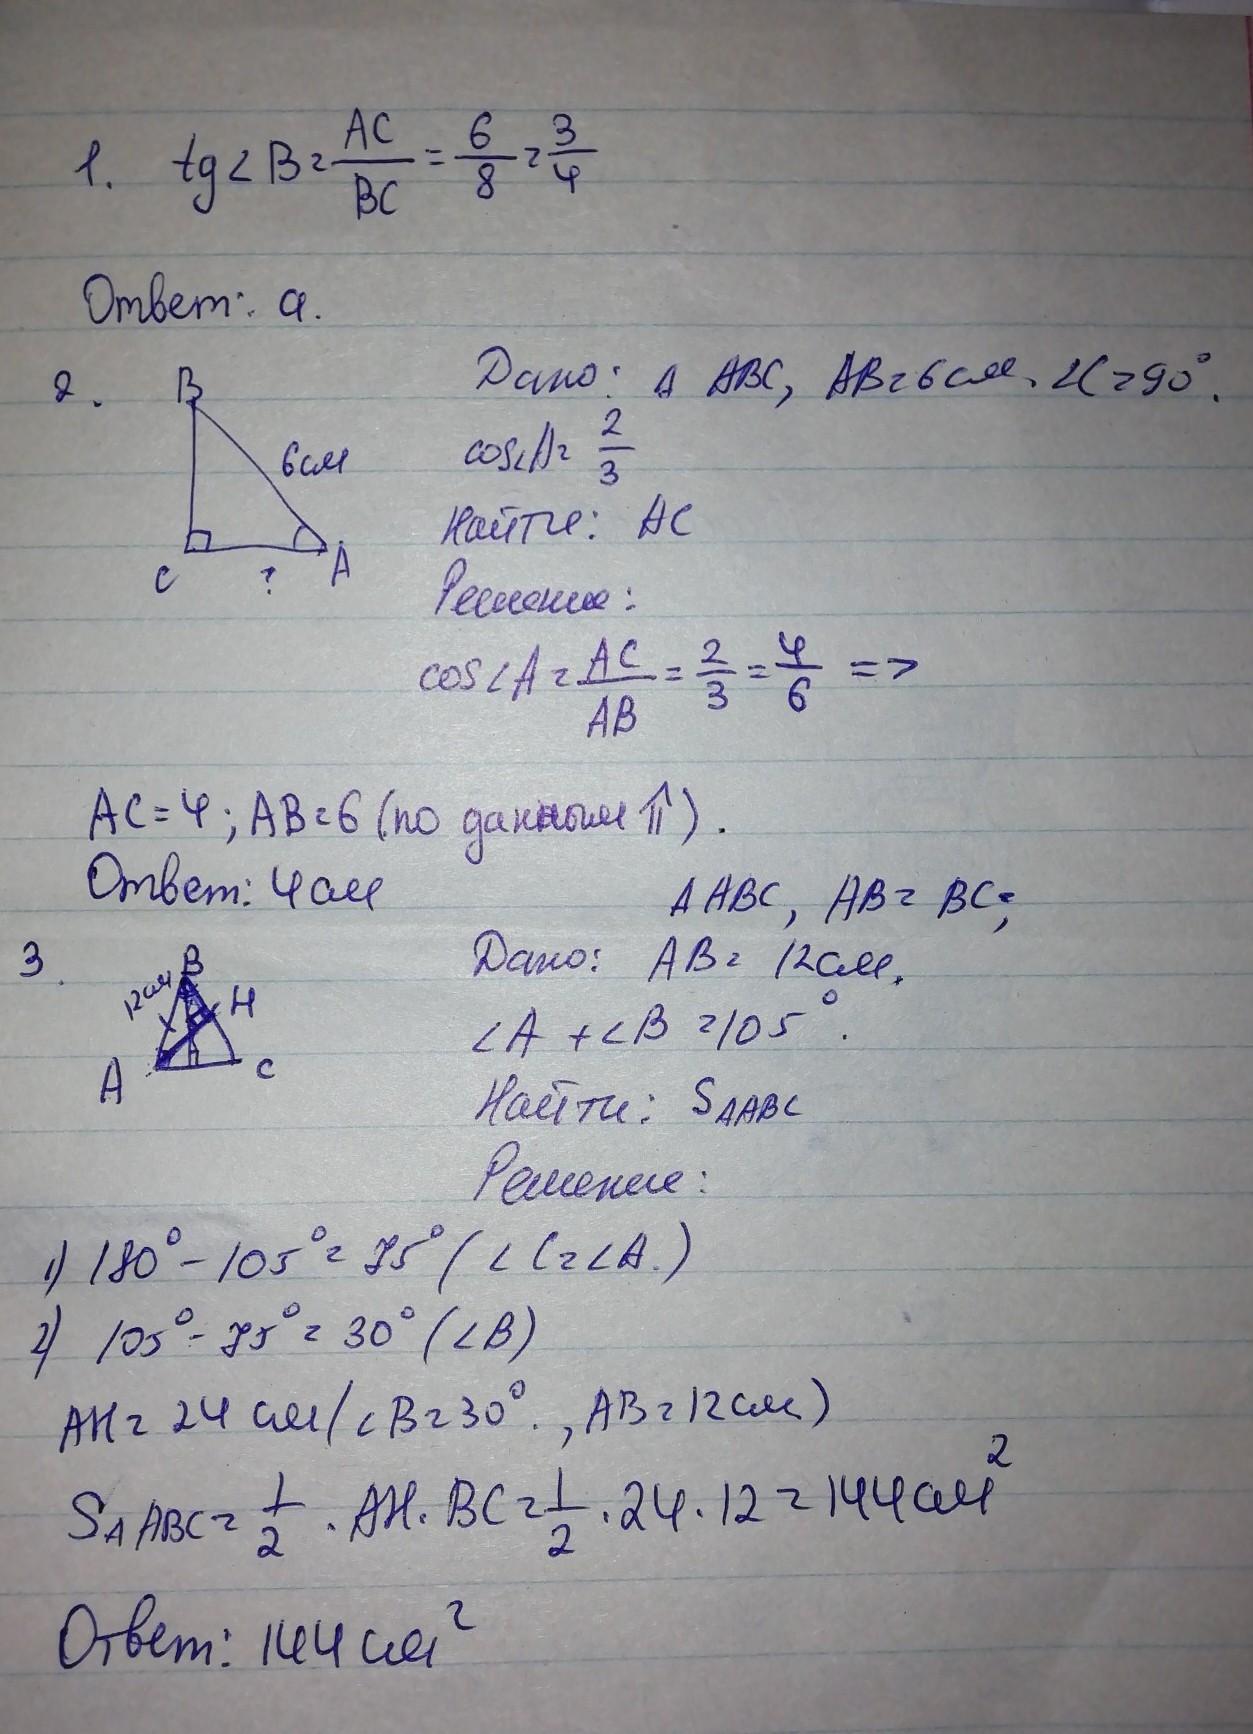 1. tg∠B = AC/BC = 6/8 = 3/4
Ответ: а.
2.
B
6см
C ? A
Дано: Δ ABC, AB = 6см. ∠C = 90°.
cos∠A = 2/3
Найти: AC
Решение:
cos∠A = AC/AB = 2/3 = 4/6 =>
AC = 4; AB = 6 (по данным ⇑).
Ответ: 4см
Δ ABC, AB = BC;
3.
B
12см
H
A C
Дано: AB = 12см.
∠A + ∠B = 105°.
Найти: SΔABC
Решение:
1) 180° - 105° = 75° (∠C = ∠A.)
2) 105° - 75° = 30° (∠B)
AH = 24 см (∠B = 30°., AB = 12см)
SΔABC = 1/2 · AH · BC = 1/2 · 24 · 12 = 144см²
Ответ: 144см²